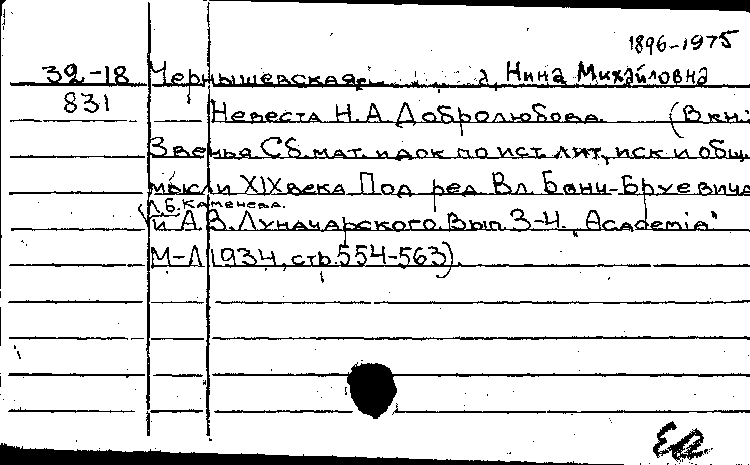 1896-1975
32-18 Чернышевская, Нина Михайловна
831 Невеста Н. А. Добролюбова. (В кн:
Звенья Сб. мат. и док по ист. лит, иск и общ.
мысли XIX века Под ред Вл. Бонч-Бруевича
Л. Б. Каменева.
и А. В. Луначарского. Вып. 3-4. "Academia"
М-Л 1934, стр. 554-563).